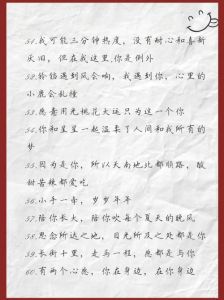 51.我可能三分钟热度，没有耐心和喜新
厌旧，但在我这里，你是例外
52.铃铛遇到风会响，我遇到你，心里的
小鹿会乱撞
53.愿意用光桃花大运只为这一个你
54.你和星星一起温柔了人间和我所有的
梦
55.因为是你，所以天南地北都顺路，酸
甜苦辣都爱吃
56.小手一牵，岁岁年年
57.陪你长大，陪你吹每个夏天的晚风
58.思念所达之地，目光所及之处都是你
59.长街十里，走马一程，愿都是与你
60.有两个心愿，你在身边，在你身边